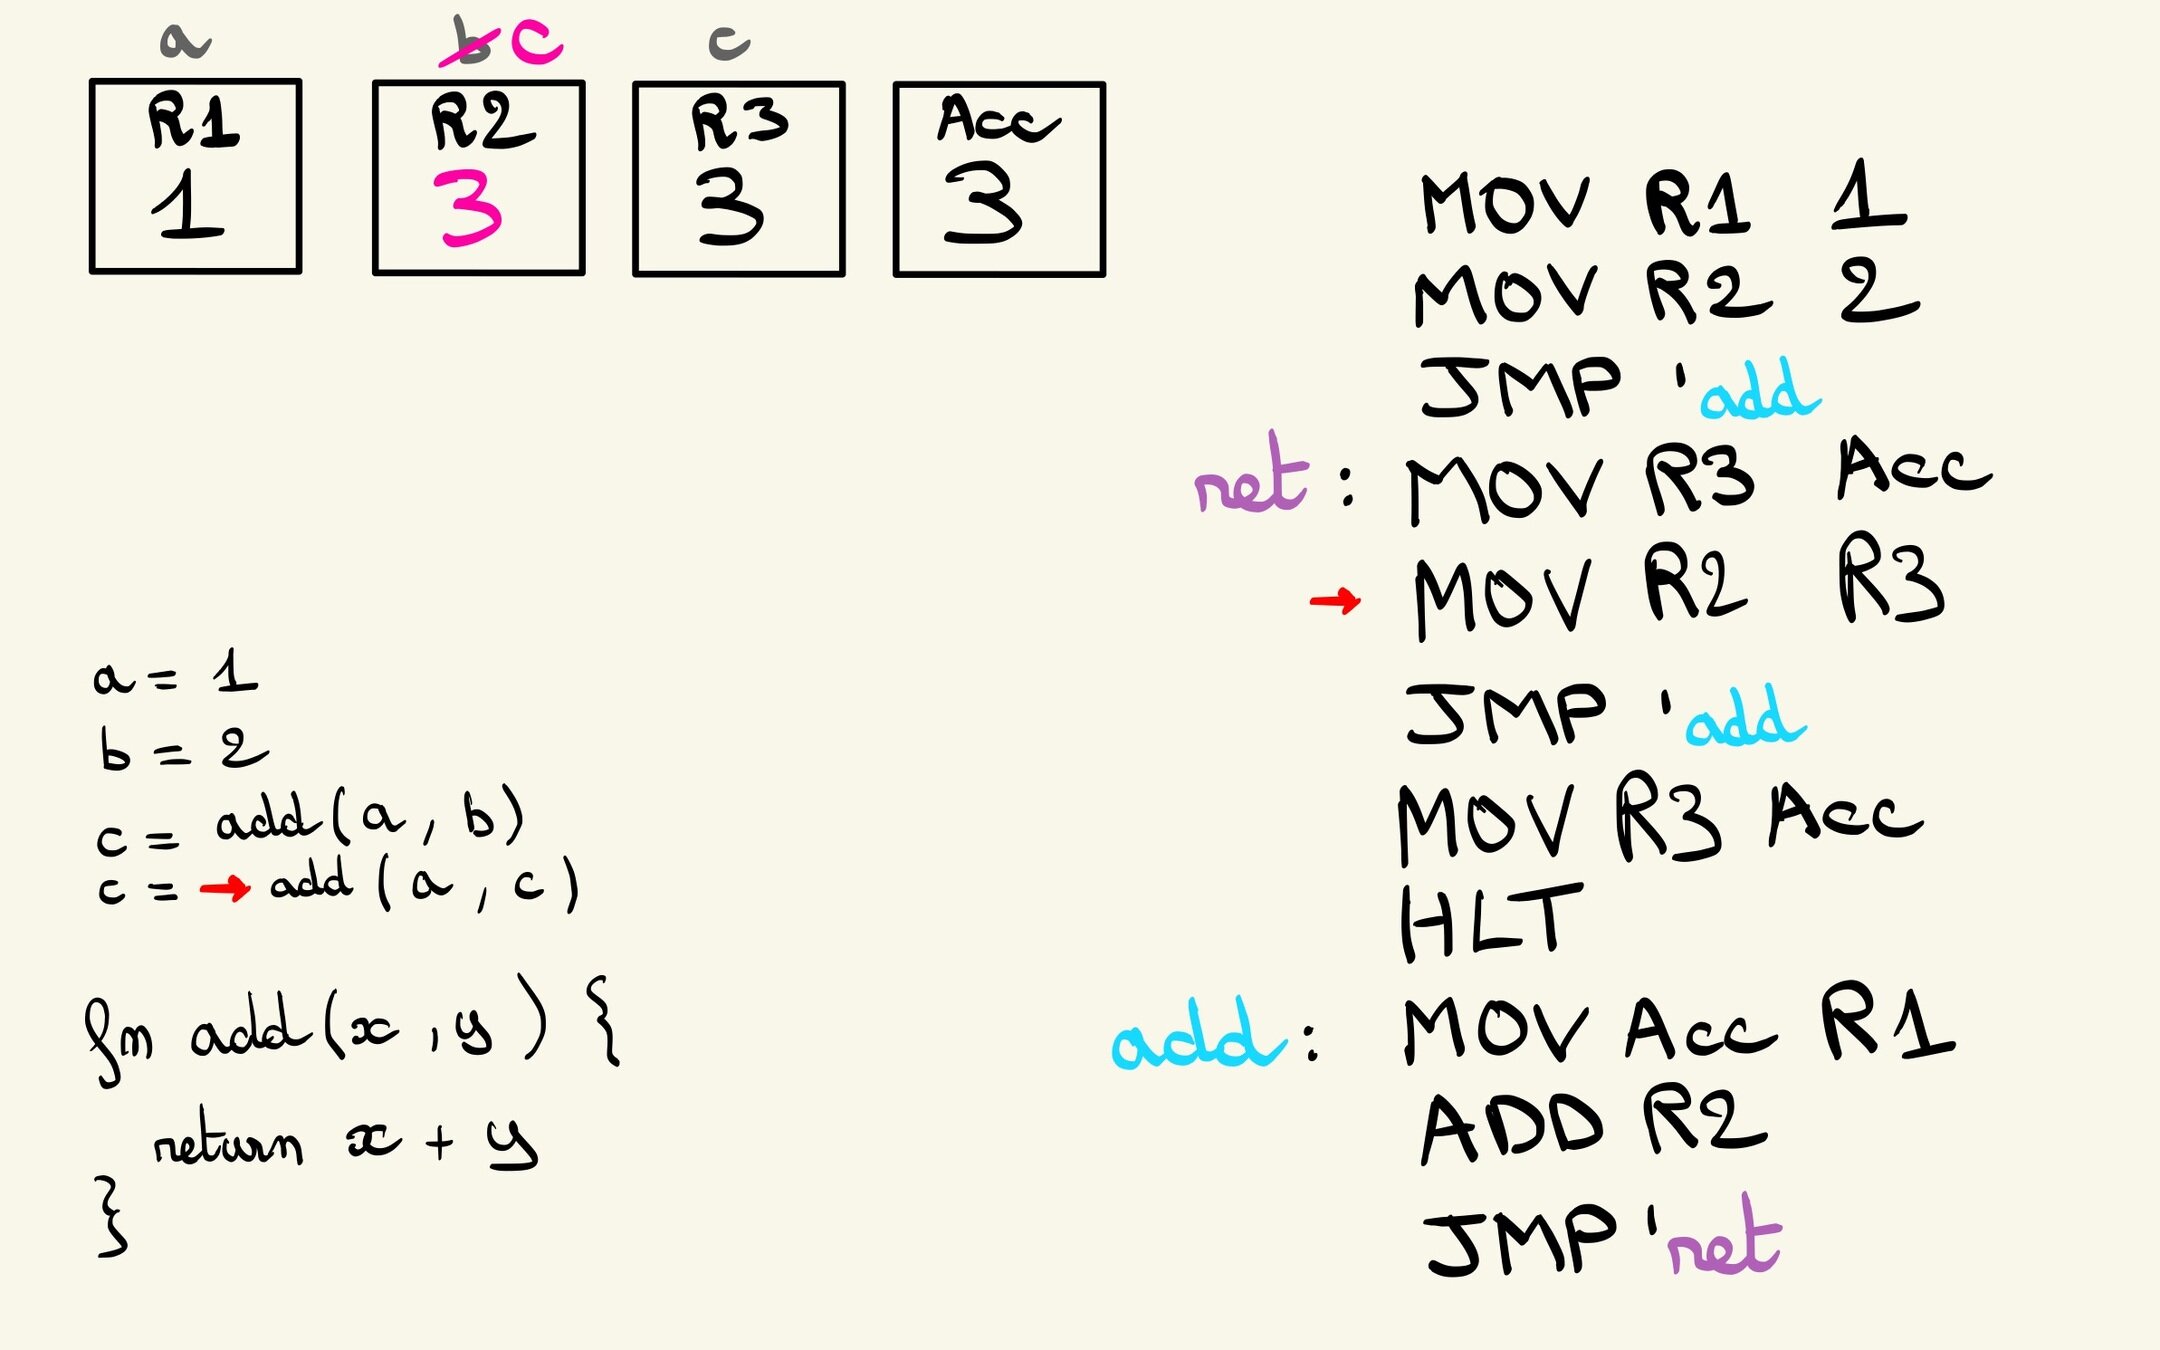 a b c c
R1 R2 R3 Acc
1 3 3 3
a = 1
b = 2
c = add(a, b)
c = → add(a, c)
fn add(x, y) {
return x + y
}
MOV R1 1
MOV R2 2
JMP 'add
ret: MOV R3 Acc
→ MOV R2 R3
JMP 'add
MOV R3 Acc
HLT
add: MOV Acc R1
ADD R2
JMP 'ret